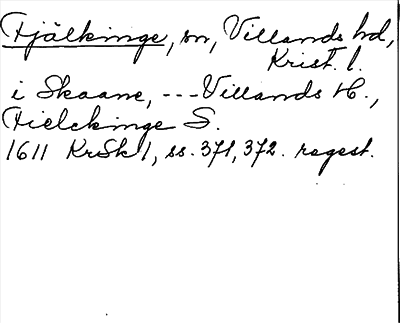 Fjälkinge, sn, Villands hd,
Krist. l.
i Skaane, --- Villands H.,
Fielckinge S.
1611 KrSk 1, ss. 371, 372. regest.